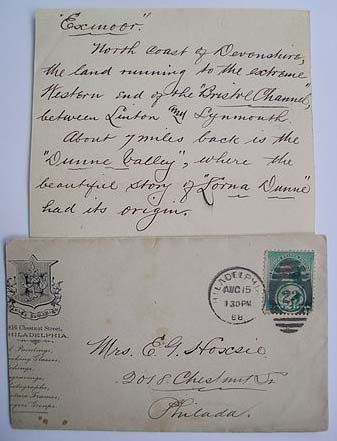 "Exmoor."
North Coast of Devonshire,
the land running to the extreme
Western end of the "Bristol Channel",
between Linton and Lynmouth.
About 7 miles back is the
"Dunne Valley", where the
beautiful story of "Lorna Dunne"
had its origin.
816 Chestnut Street,
PHILADELPHIA.
Paintings,
Looking Glasses,
Etchings,
Engravings,
Autographs,
Picture Frames,
Rogers Groups.
PHILADELPHIA
AUG 15
130 PM
88
2
Mrs. E. G. Hoxsie
2018 Chestnut St.
Philada.